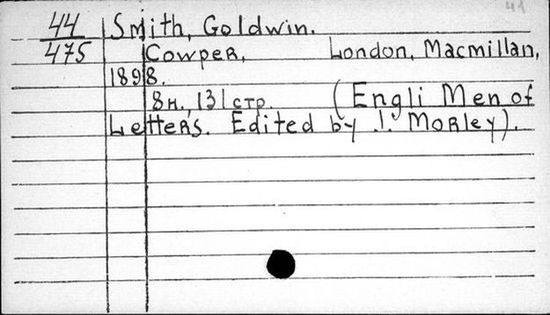 44 Smith, Goldwin.
475 Cowper, London, Macmillan,
1898.
8н, 131 стр. (Engli Men of
Letters. Edited by J. Morley).